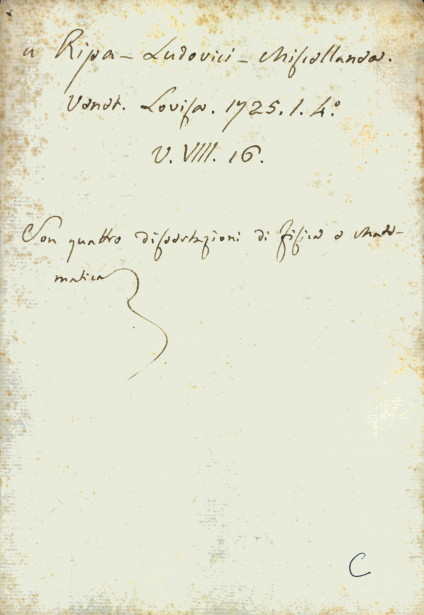 a Ripa - Ludovici - Miscellanea.
Venet. Lovisa. 1725. 1. 4.º
V. VIII. 16.
Son quattro dissertazioni di fisica e Mate-
matica
C